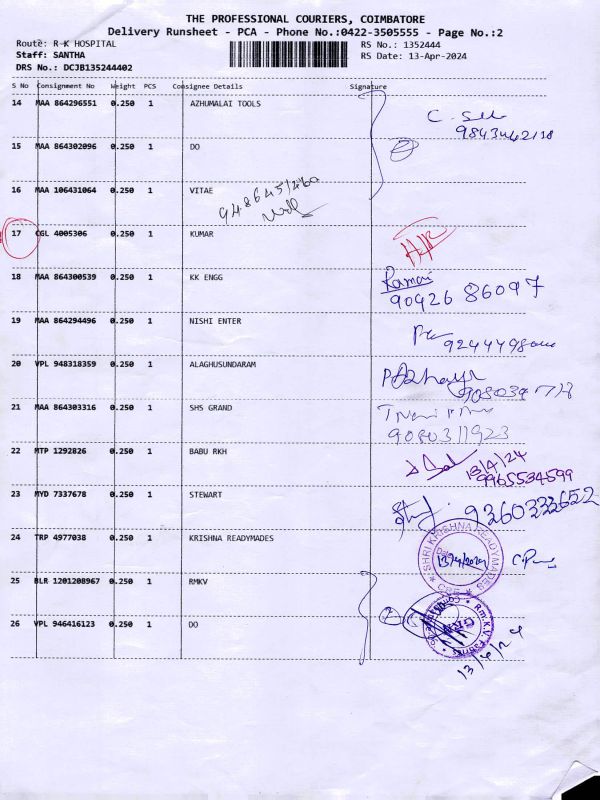 THE PROFESSIONAL COURIERS, COIMBATORE
Delivery Runsheet - PCA - Phone No.:0422-3505555 - Page No.:2
Route: R K HOSPITAL
RS No.: 1352444
Staff: SANTHA
RS Date: 13-Apr-2024
DRS No.: DCJB135244402
S No Consignment No Weight PCS Consignee Details Signature
14 MAA 864296551 0.250 1 AZHUMALAI TOOLS
15 MAA 864302096 0.250 1 DO
16 MAA 106431064 0.250 1 VITAE
17 CGL 4005306 0.250 1 KUMAR
18 MAA 864300539 0.250 1 KK ENGG
90426 86097
19 MAA 864294496 0.250 1 NISHI ENTER
20 VPL 948318359 0.250 1 ALAGHUSUNDARAM
21 MAA 864303316 0.250 1 SHS GRAND
9080311923
22 MTP 1292826 0.250 1 BABU RKH
13/4/24
9965534599
23 MYD 7337678 0.250 1 STEWART
9360333652
24 TRP 4977038 0.250 1 KRISHNA READYMADES
SHRI KRISHNA READYMADES
CBE
25 BLR 1201208967 0.250 1 RMKV
26 VPL 946416123 0.250 1 DO
13/4/24